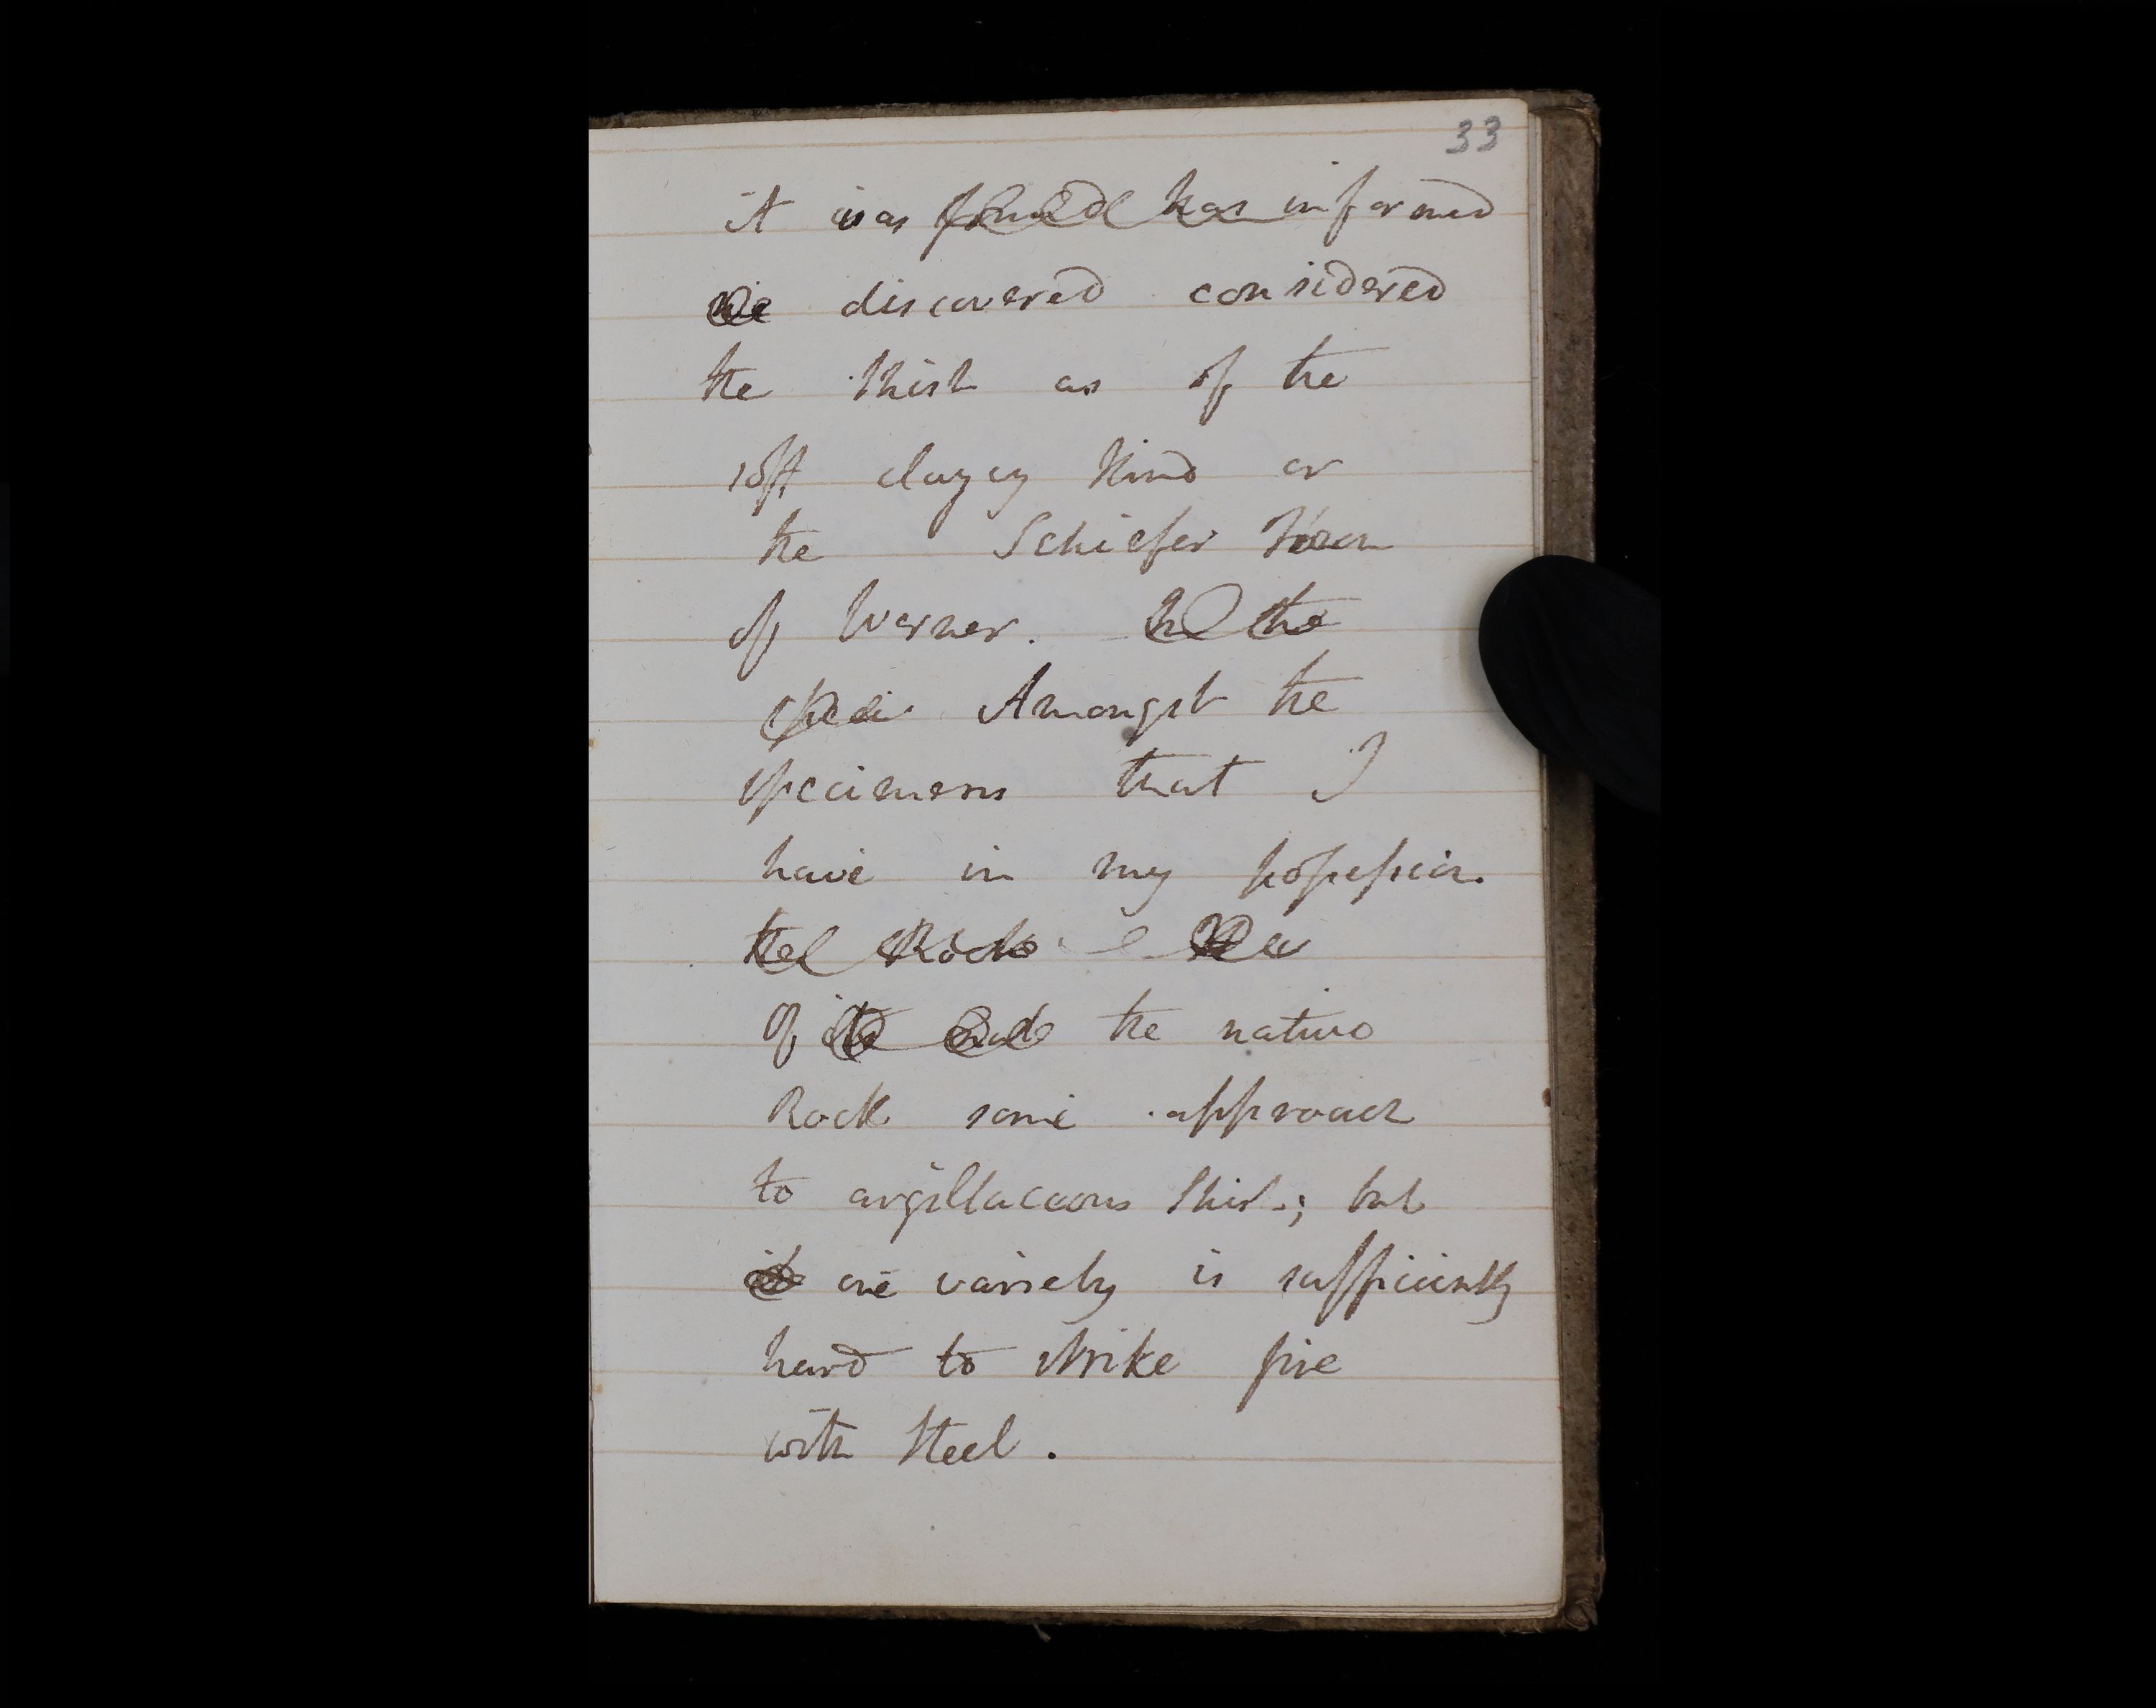 33
it was found has informed
me discovered considered
the Shist as of the
soft clayey kind or
the Schiefer Thon
of Werner. In the
speci Amongst the
specimens that I
have in my possession
the Rock
of the the native
Rock some approach
to argillaceous Shist; but
it one variety is sufficiently
hard to strike fire
with Steel.